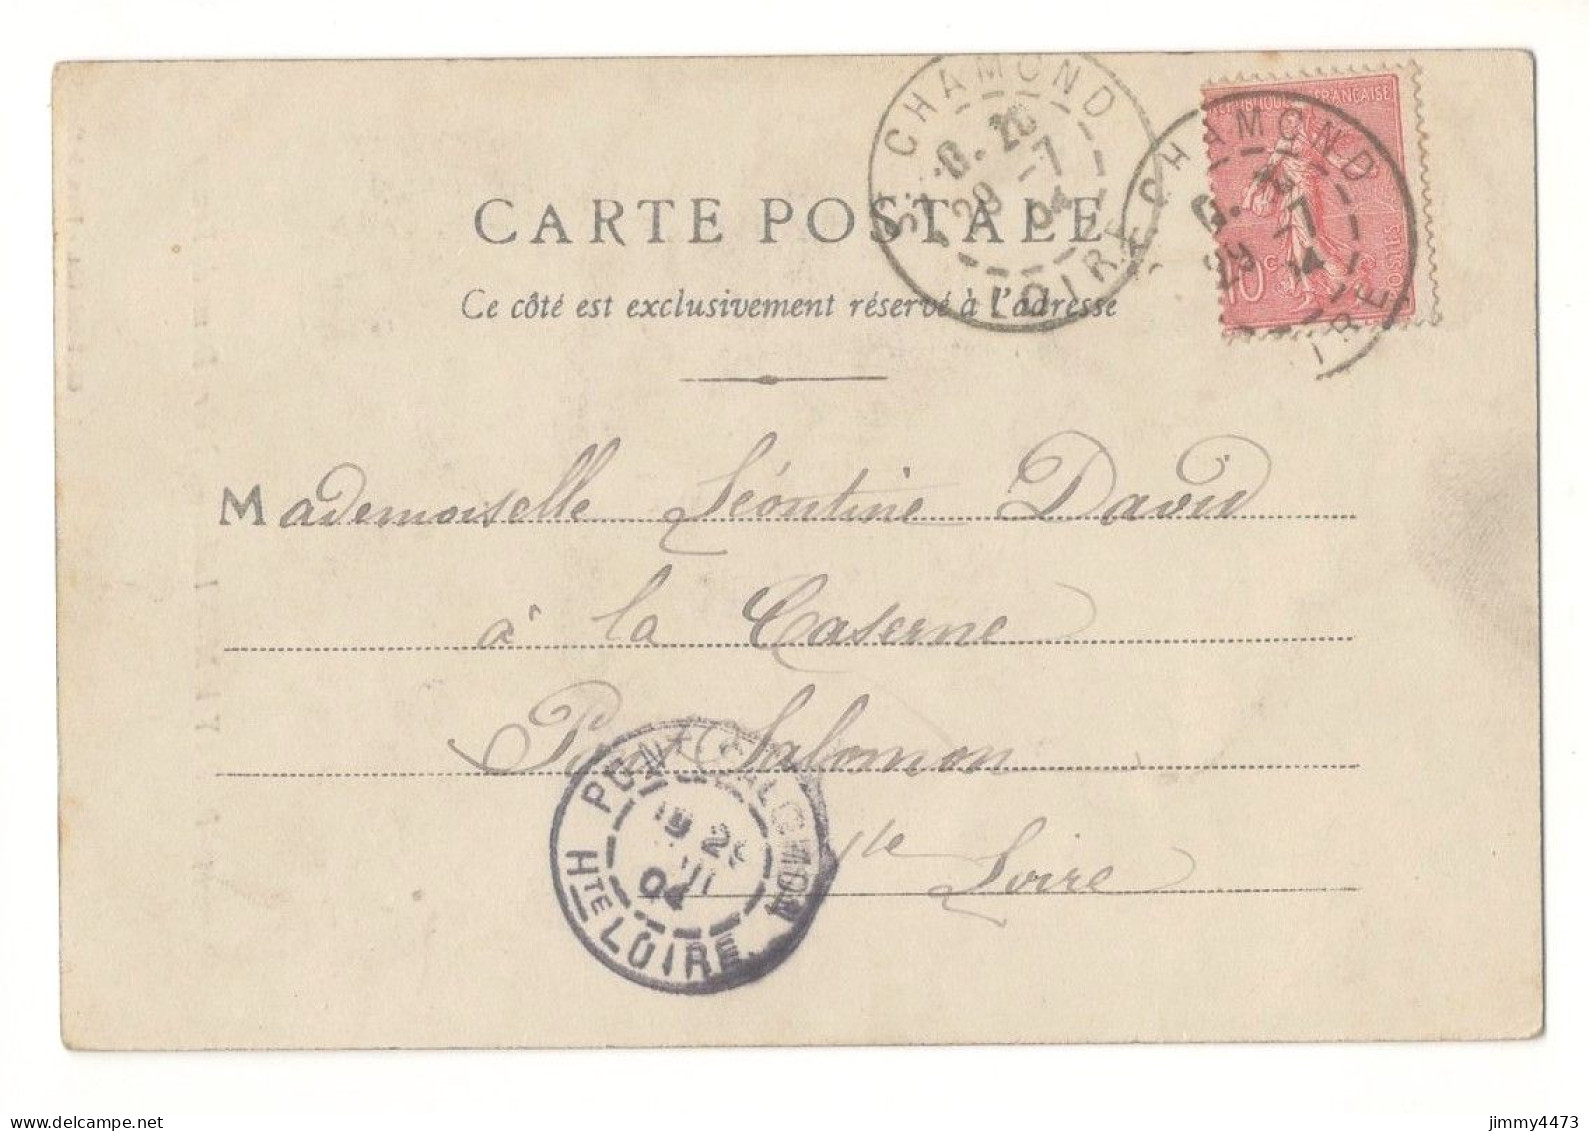 ST CHAMOND
29 -7
04
LOIRE
CHAMOND
29 -7
04
RÉPUBLIQUE FRANÇAISE
10 c
POSTES
CARTE POSTALE
Ce côté est exclusivement réservé à l'adresse
Mademoiselle Léontine David
à la Caserne
Pont Salomon
Hte Loire
PONT SALOMON
04
HTE LOIRE
jimmy4473